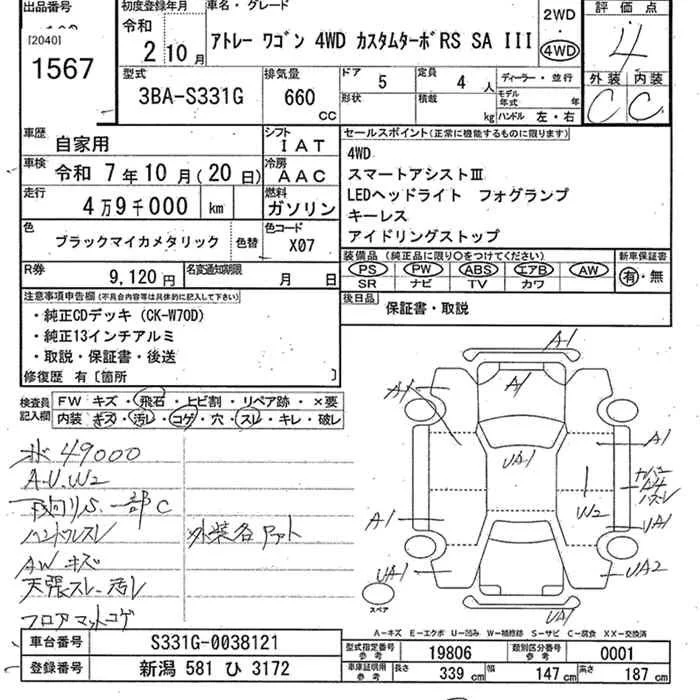 出品番号
[2040]
1567
初度登録年月
令和
2年10月
車名・グレード
アトレー ワゴン 4WD カスタムターボRS SA III
2WD
・
4WD
評価点
4
外装 内装
C C
型式
3BA-S331G
排気量
660
CC
ドア
5
形状
定員
4 人
積載
kg
ディーラー・並行
モデル年式 年
ハンドル 左・右
車歴
自家用
シフト
IAT
車検
令和 7年10月(20日)
冷房
AAC
走行
4万9千000 km
燃料
ガソリン
色
ブラックマイカメタリック
色替
色コード
X07
R券
9,120 円
名変通知期限
月 日
セールスポイント(正常に機能するものに限ります)
4WD
スマートアシストⅢ
LEDヘッドライト フォグランプ
キーレス
アイドリングストップ
装備品(純正品に限り○をつけてください)
PS PW ABS エアB AW
SR ナビ TV カワ
新車保証書
有・無
後日品
保証書・取説
注意事項申告欄(不具合内容等は具体的に記入して下さい)
・純正CDデッキ(CK-W70D)
・純正13インチアルミ
・取説・保証書・後送
修復歴 有[箇所 ]
検査員記入欄
FW キズ・飛石・ヒビ割・リペア跡・×要
内装・キズ・汚レ・コゲ・穴・スレ・キレ・破レ
49000
A.U.W2
下廻りS.一部C
ハンドルスレ
AWキズ
天張スレ汚レ
フロアマットコゲ
外装各
A1
A1
A1
UA1
A1
W2
カバー
A4
UA1
A1
UA1
UA2
UA1
スペア
A-キズ E-エクボ U-凹み W-補修跡 S-サビ C-腐食 XX-交換済
車台番号
S331G-0038121
登録番号
新潟 581 ひ 3172
型式指定番号
参考
19806
類別区分番号
参考
0001
車庫証明用
参考
長さ 339 cm 幅 147 cm 高さ 187 cm